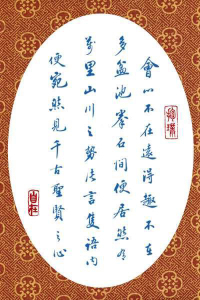 會心不在遠得趣不在
多盆池拳石間便居然有
萬里山川之勢片言隻語內
便宛然見千古聖賢之心